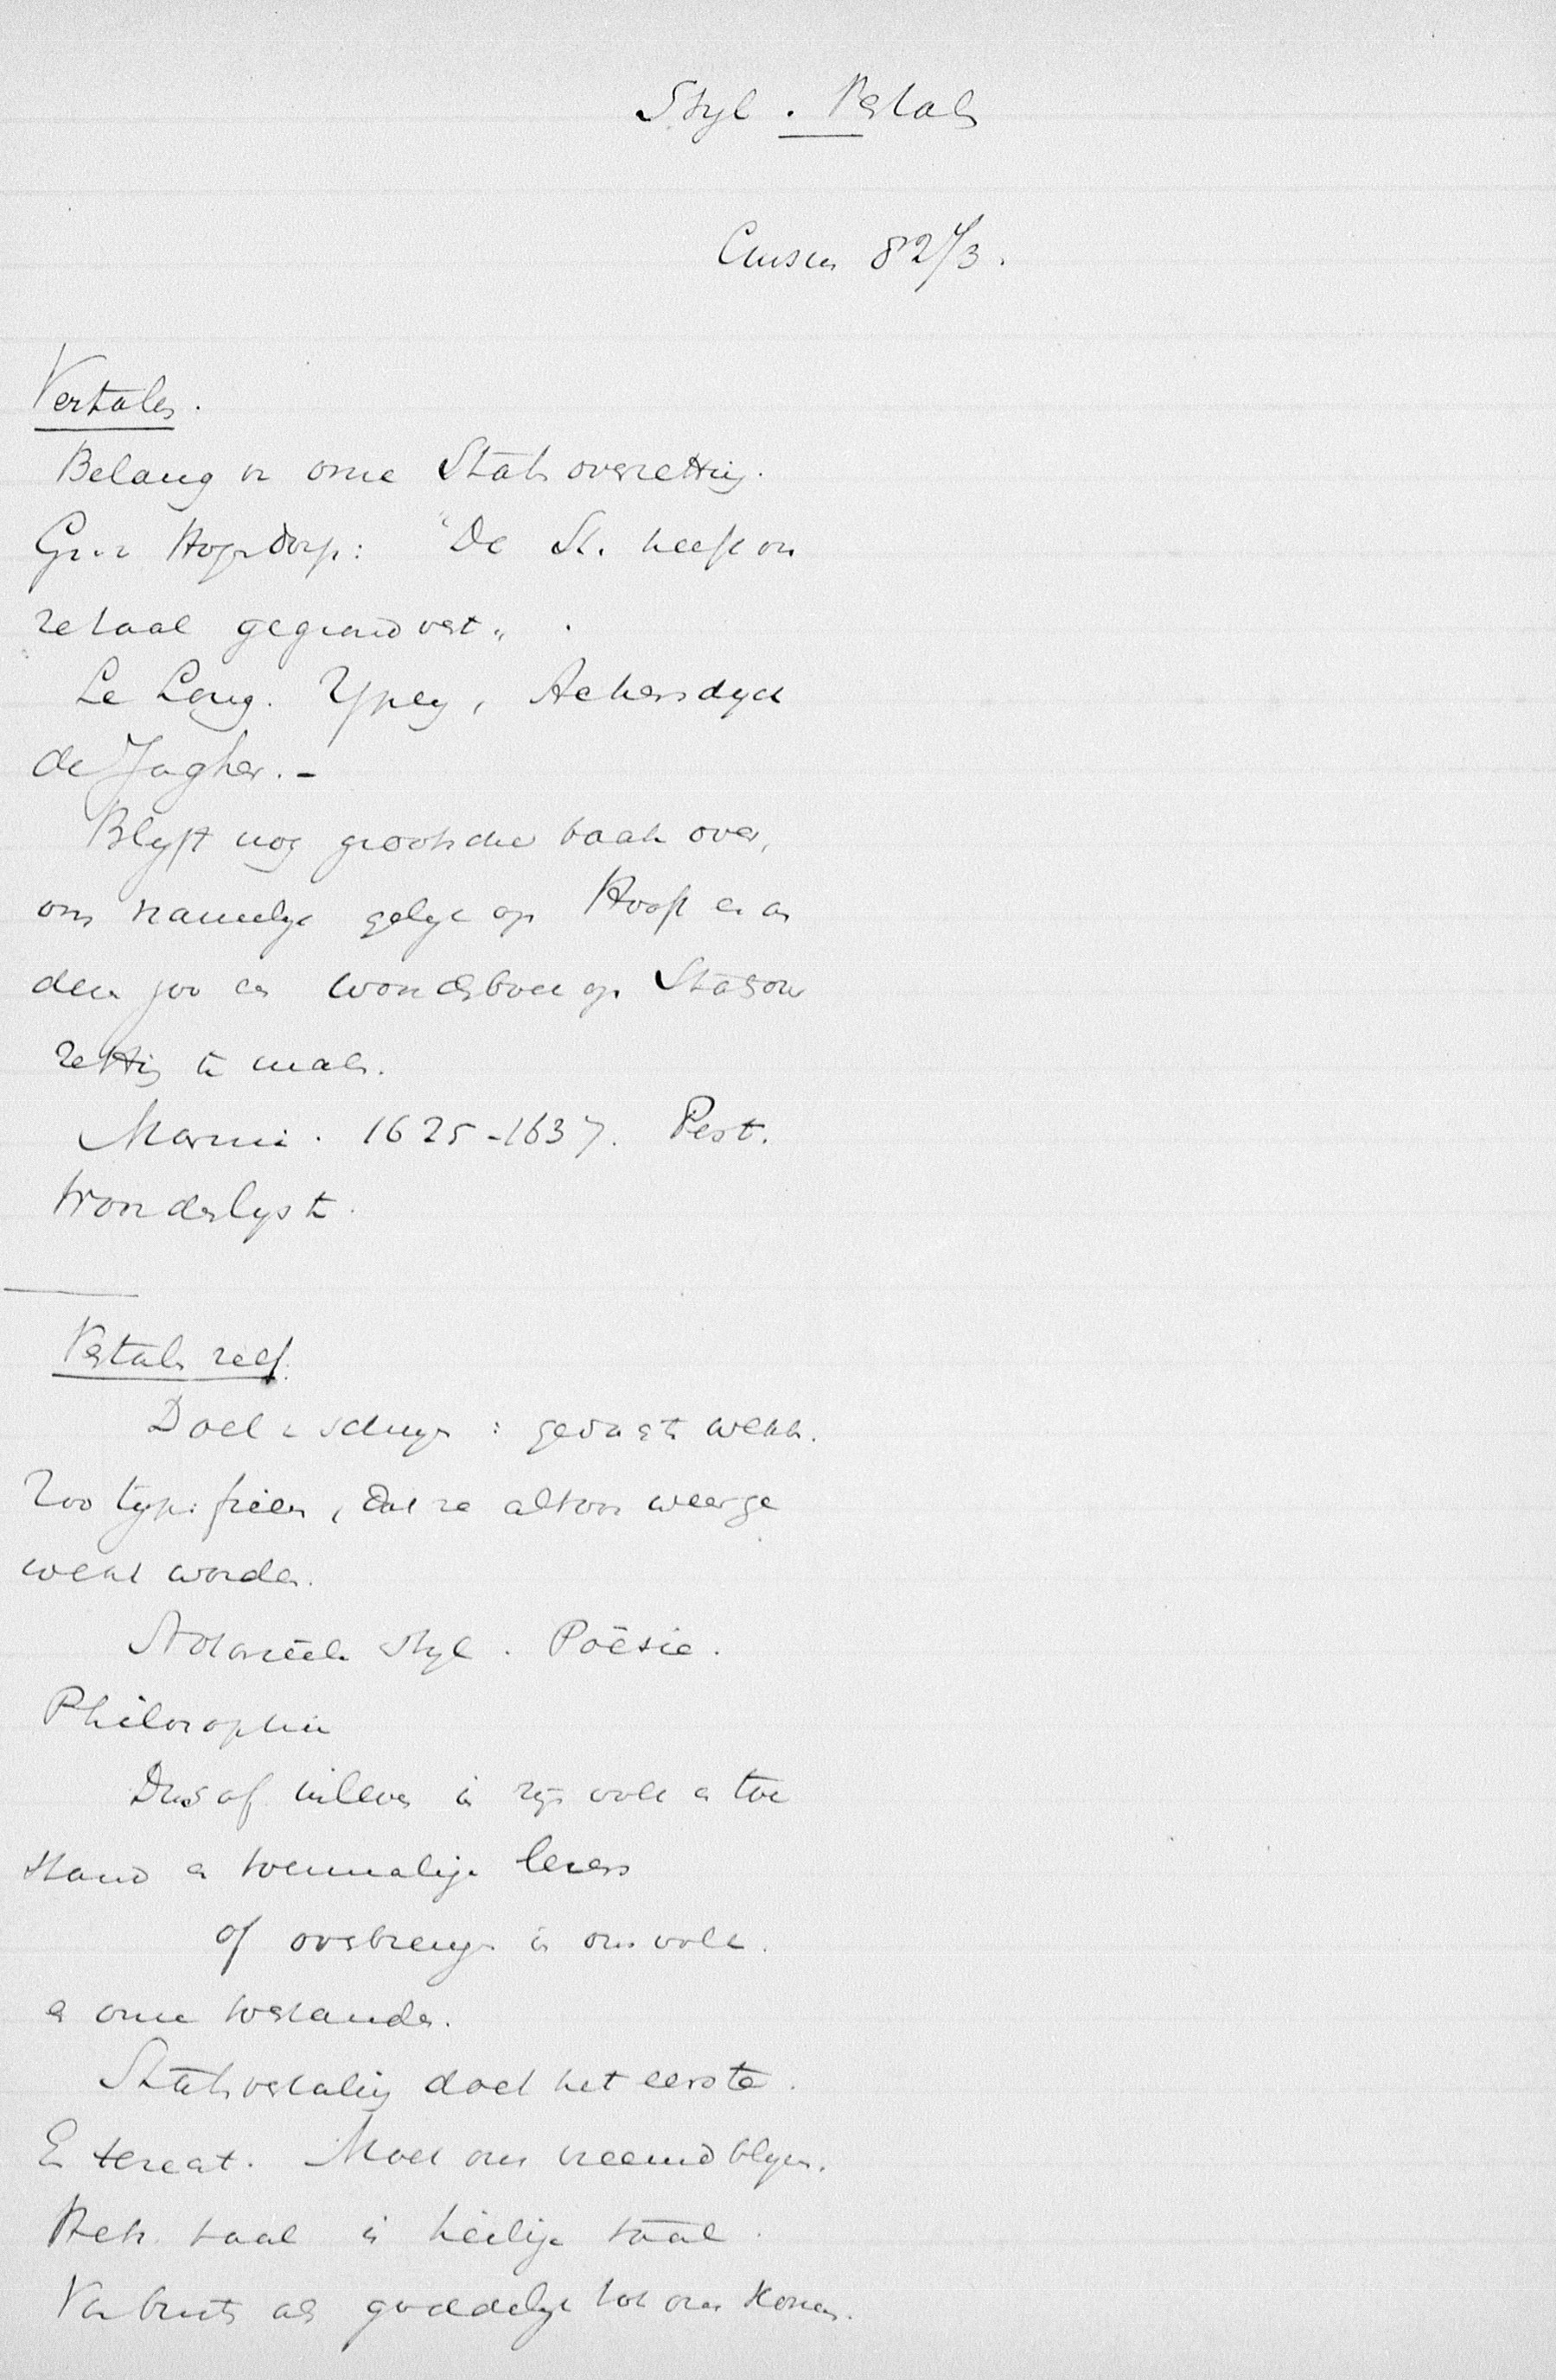 Styl. Vertalen
Cursus 82/3.
Vertalen.
Belang v. onze Staten overzetting.
G. v. Hogendorp: "De St. heeft on
ze taal gegrondvest".
Le Long. Ypey, Ackersdyck
de Jagher. -
Blyft nog grootsche taak over,
om namelyk gelyk op Hooft en an
deren zoo een woordenboek op Statenover
zetting te maken.
Marnix. 1625-1637. Pest.
Wonderlyst.
Vertalen zelf.
Doel v schryver : gedachte wekk.
Zoo typifieeren, dat ze altoos weerge
wekt worden.
Notarieele styl. Poësie.
Philosophie
Dus of inleven in zyn volk en toe
stand en toenmalige lezers
of overbrengen in ons volk
en onze toestanden.
Staten vertaling doet het eerste.
En terecht. Moet ons vreemd blyven.
Hebr. taal is heilige taal.
Van buiten als goddelyk tot ons komen.